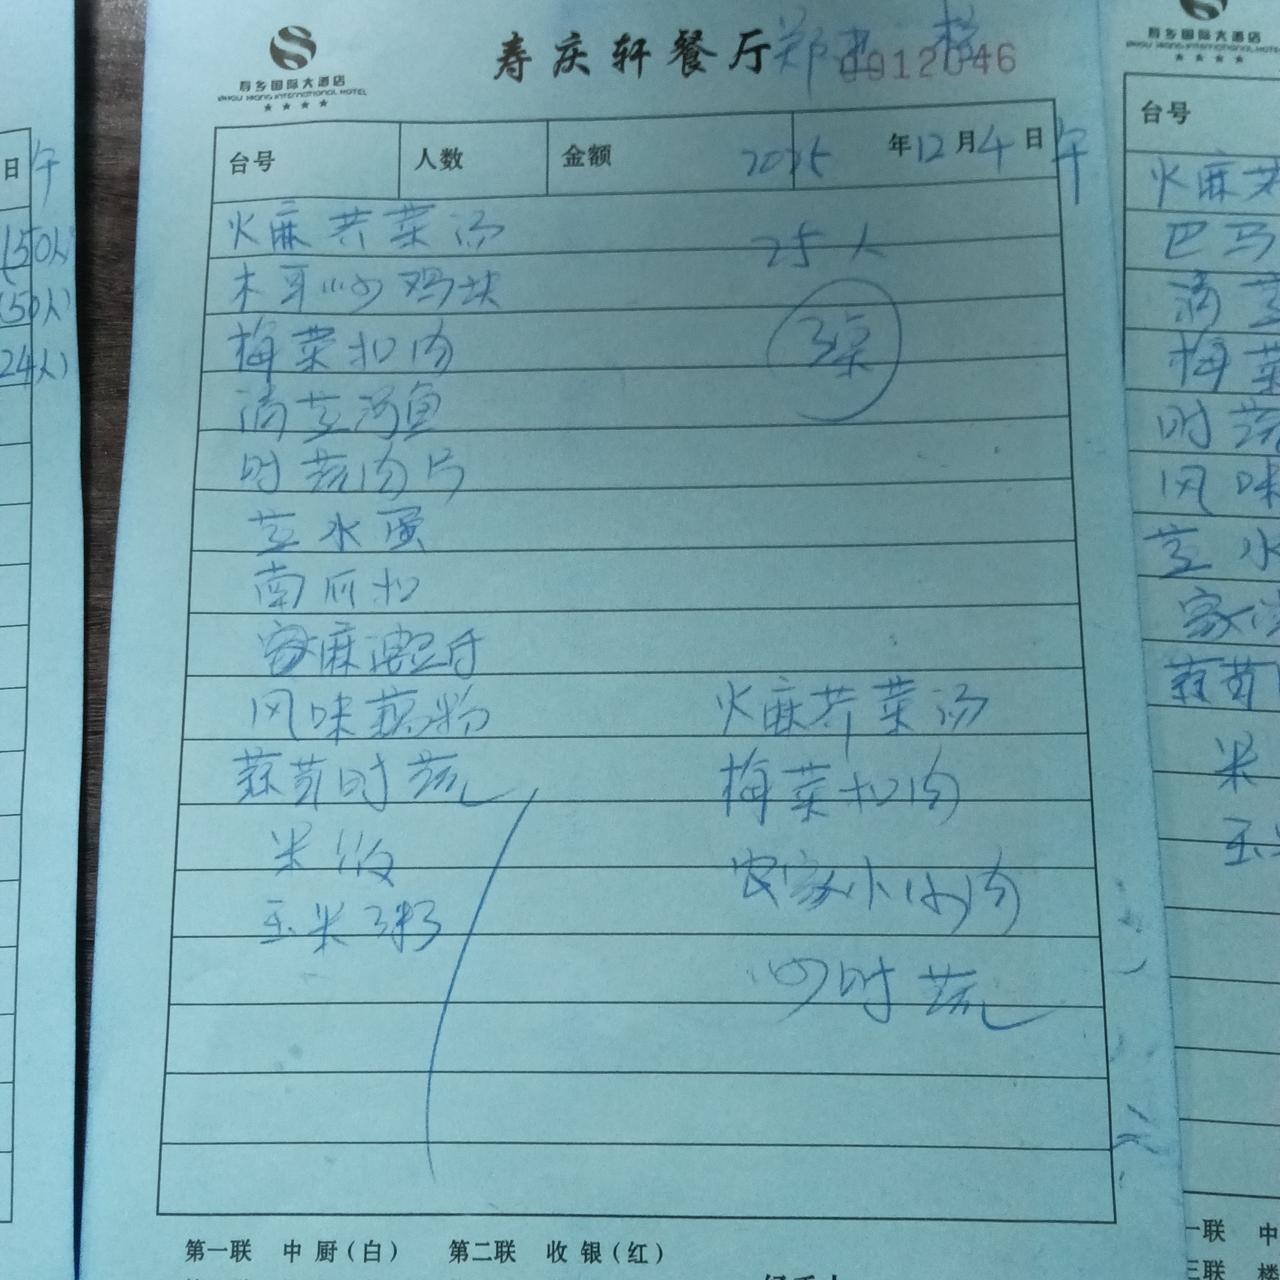 寿乡国际大酒店
SHOU XIANG INTERNATIONAL HOTEL
寿庆轩餐厅 郑 0012046
台号 人数 金额 2025 年12月4日 午
火麻芥菜汤 25人
木耳炒鸡块
梅菜扣肉 3桌
清蒸河鱼
时蔬肉片
蒸水蛋
南瓜扣
家麻婆豆腐
风味藕粉 火麻芥菜汤
蒜茸时蔬 梅菜扣肉
米饭 农家小炒肉
玉米粥
炒时蔬
第一联 中厨(白) 第二联 收银(红)
日午
150人
50人)
24人)
台号
火麻芥
巴马
清蒸
梅菜
时蔬
风味
蒸水
家常
蒜茸
米
玉米
一联 中
三联 楼